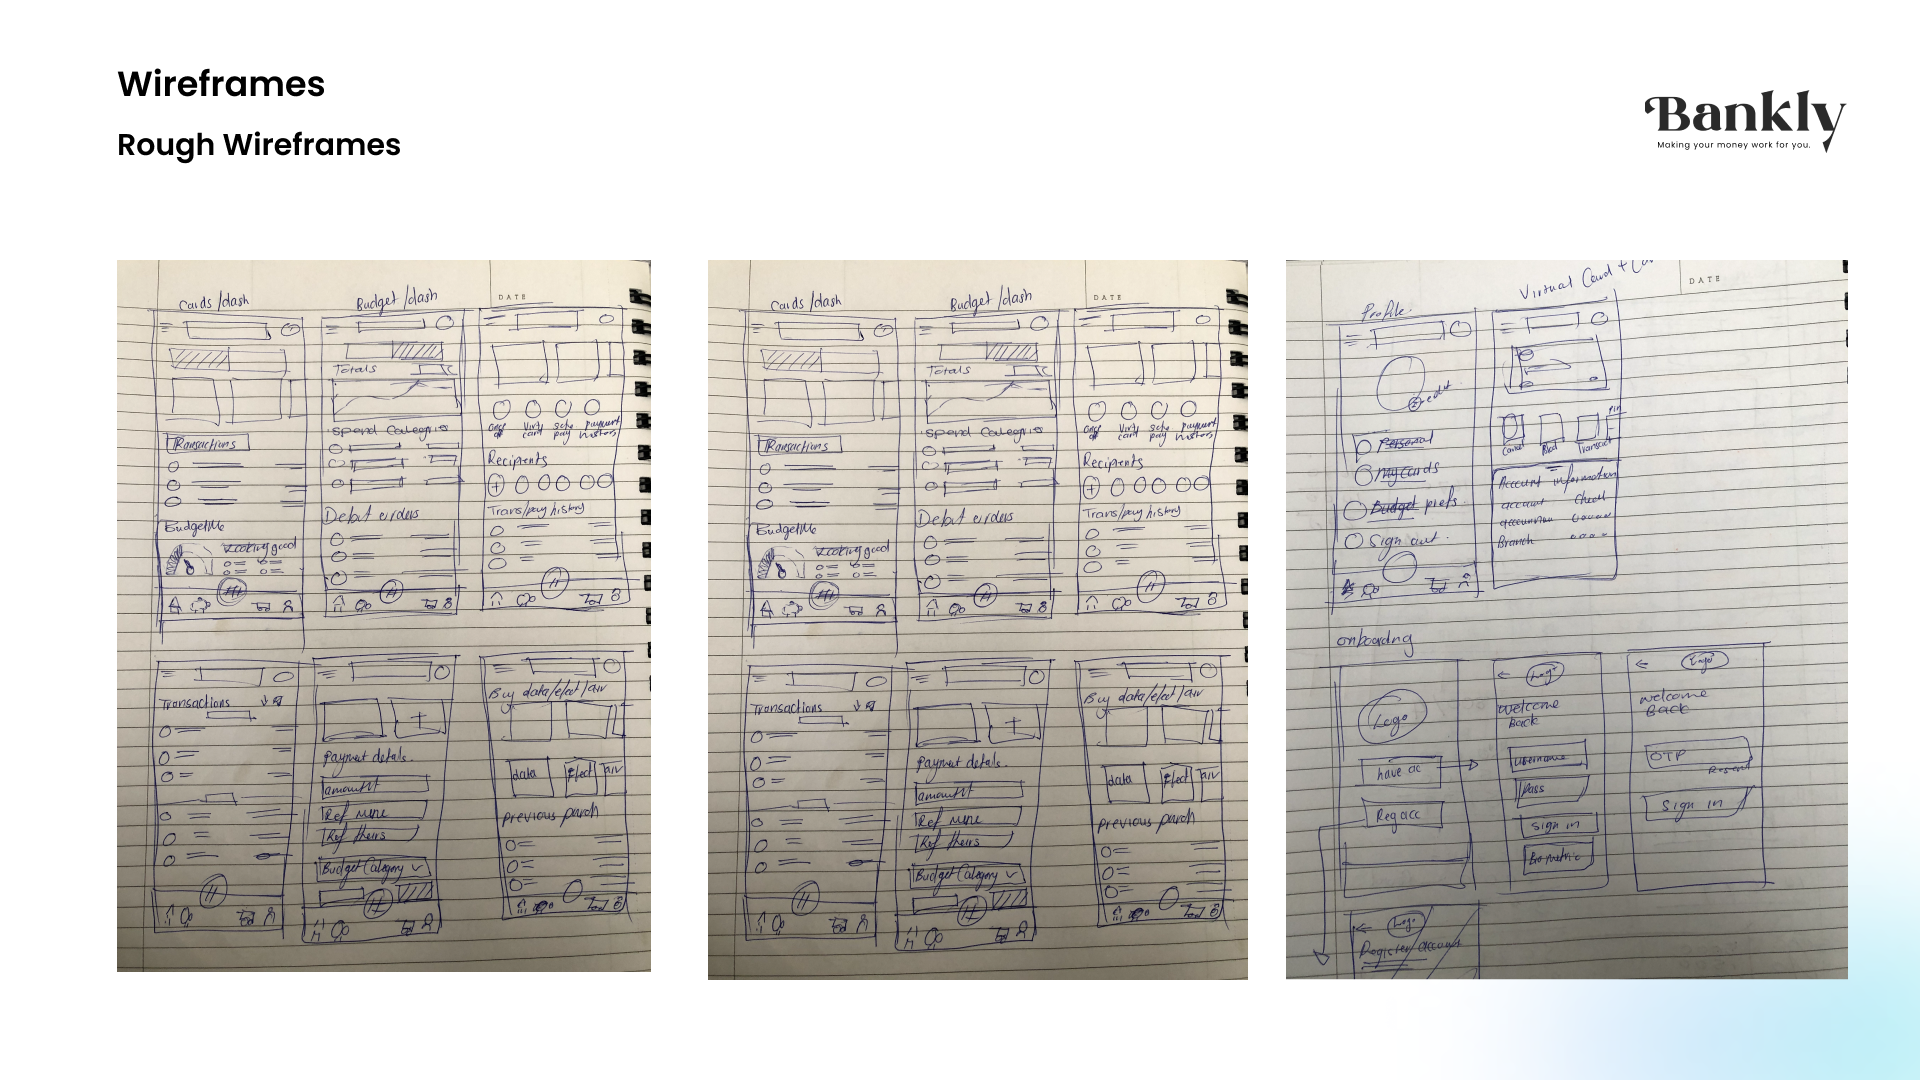 Wireframes
Rough Wireframes
Bankly
Making your money work for you.
Cards /dash
Budget /dash
DATE
Totals
Spend Categories
Transactions
once off
Virt card
sche pay
payment
Recipients
Trans/pay history
Debit orders
BudgetMe
Looking good
Transactions
Buy data/elect/air
Payment details.
amount
data
Elect
air
Ref mine
previous purch
Ref theirs
Budget Category
Cards /dash
Budget /dash
DATE
Totals
Spend Categories
Transactions
once off
Virt card
sche pay
payment
Recipients
Trans/pay history
Debit orders
BudgetMe
Looking good
Transactions
Buy data/elect/air
Payment details.
amount
data
Elect
air
Ref mine
previous purch
Ref theirs
Budget Category
Virtual Card +
DATE
Profile.
edit
pin
Personal
My cards
Account information
Budget prefs.
account
Sign out.
Branch
onboarding
Logo
have ac
Reg acc
Logo
Welcome
Back
username
pass
Sign in
Biometric
Logo
Welcome
Back
OTP
Resend
Sign in
Logo
Register account